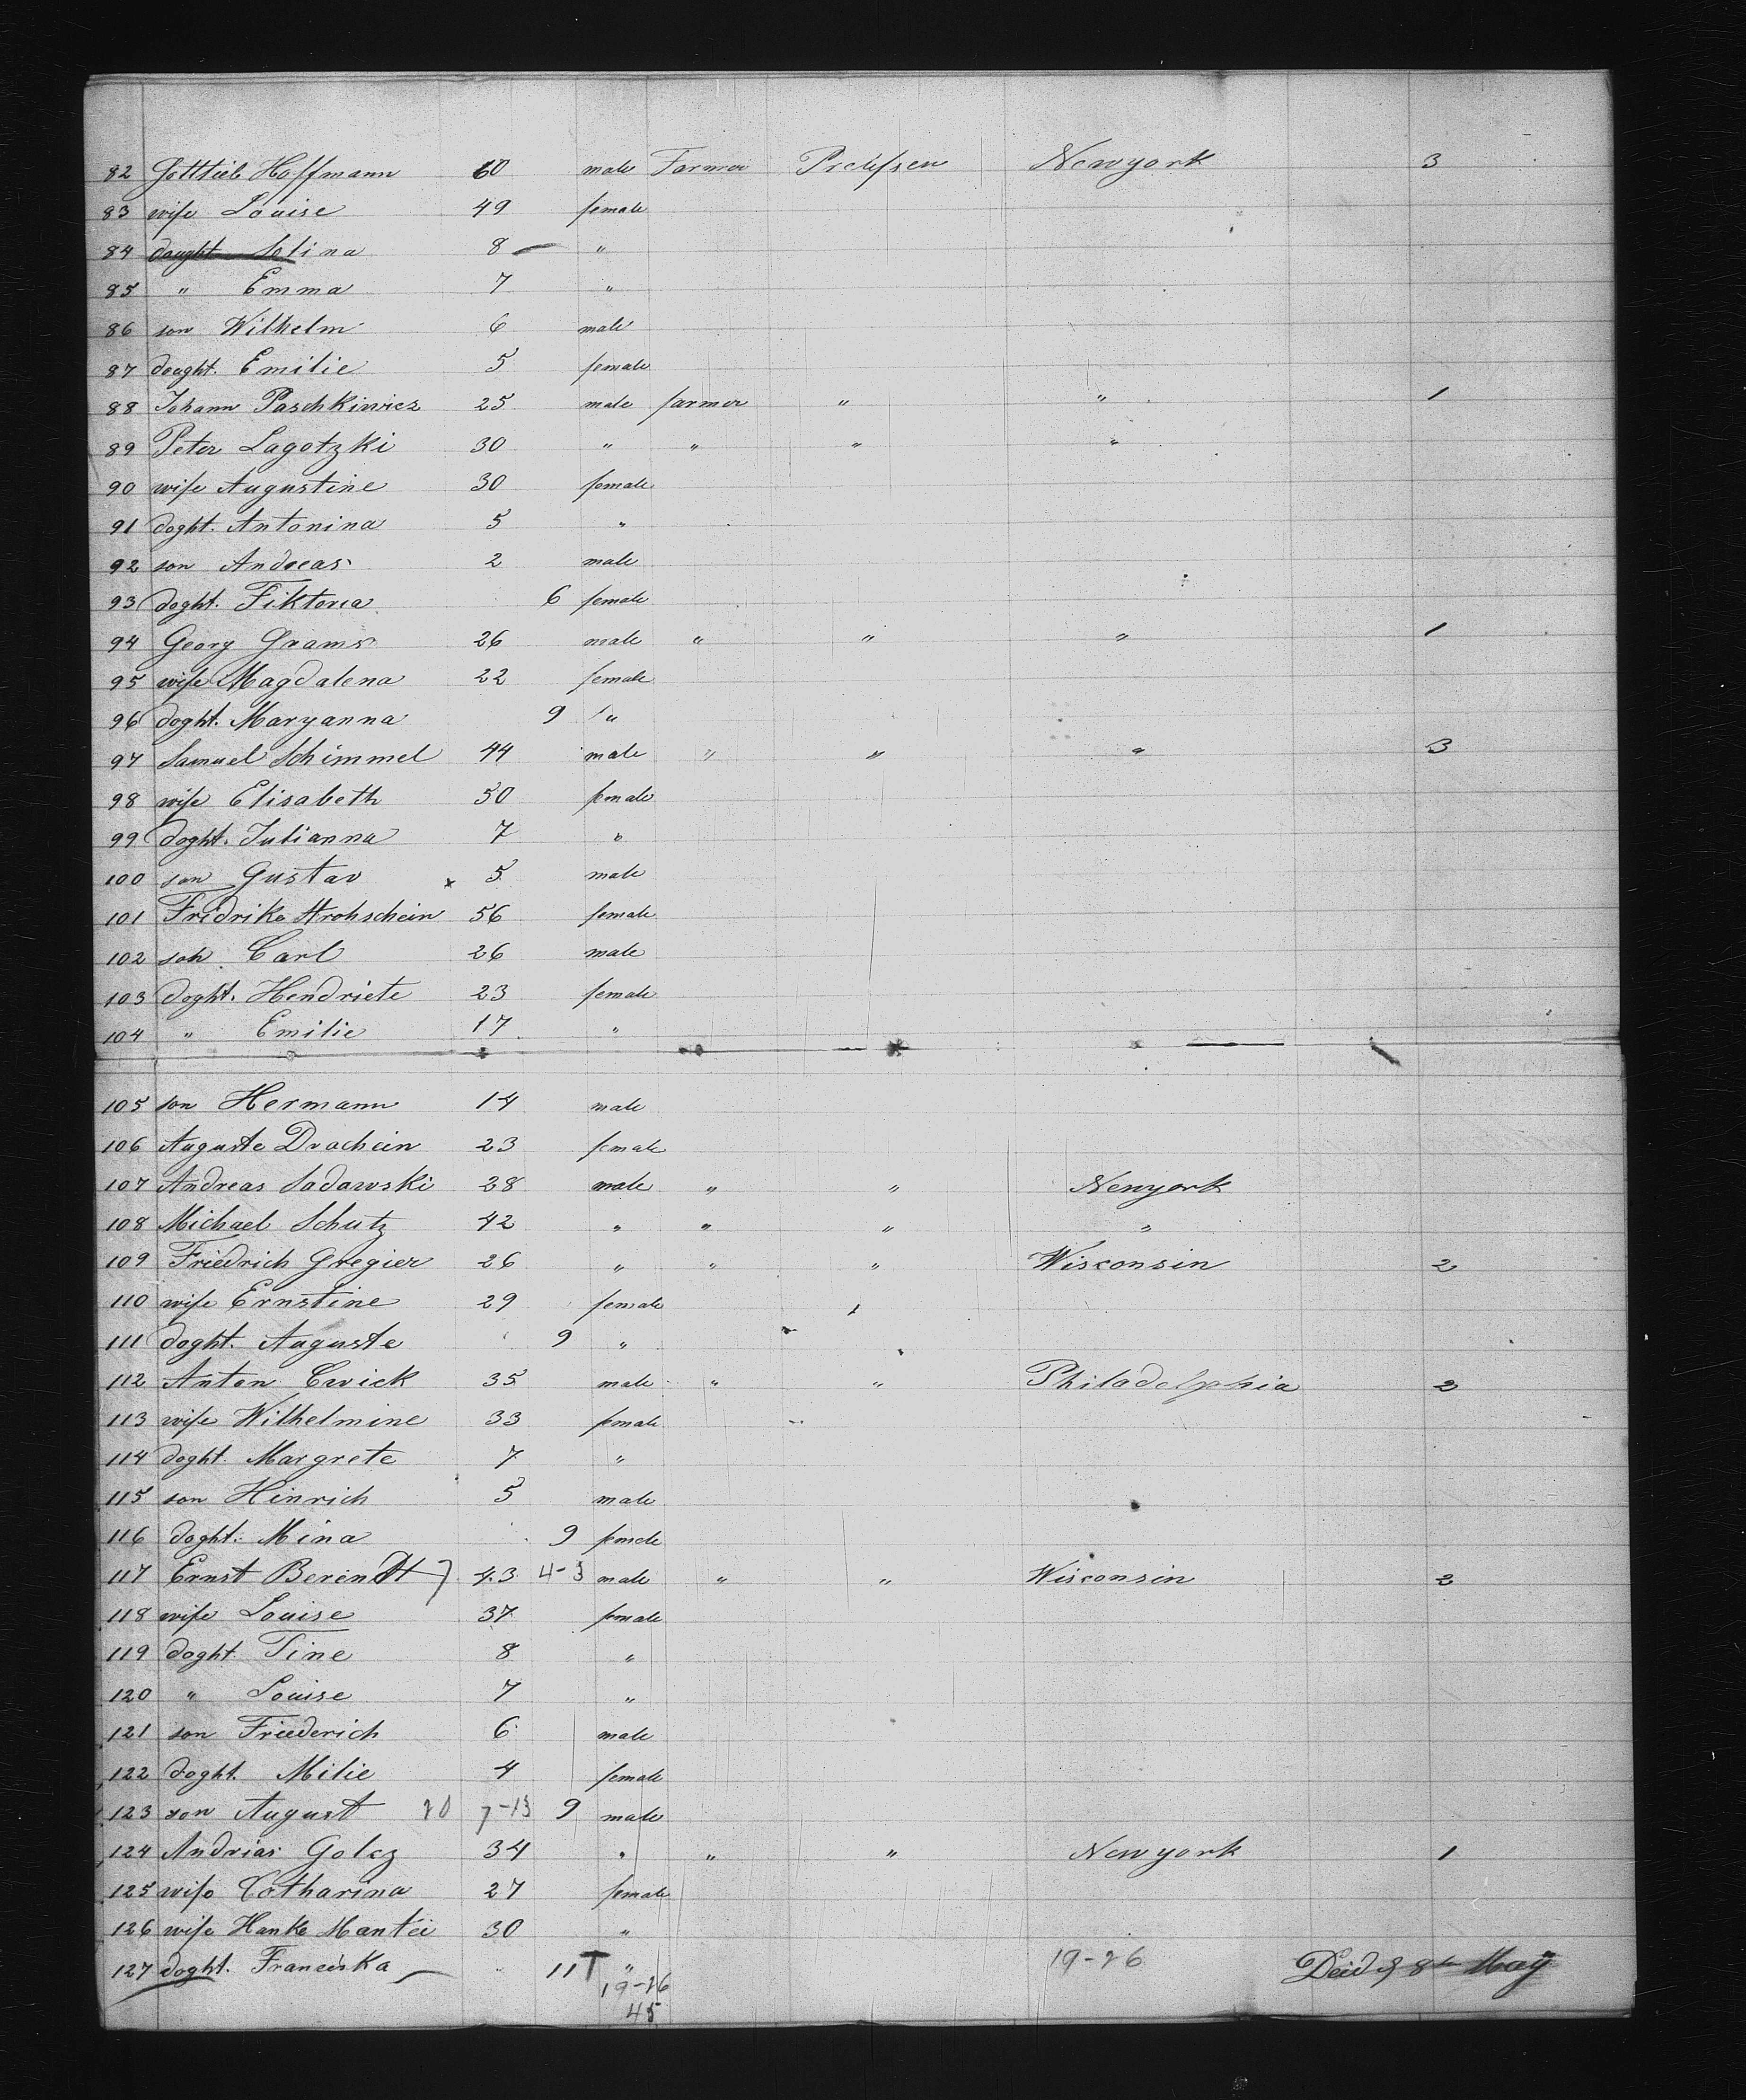 82 Gottlieb Hoffmann 60 male Farmer Preussen Newyork 3
83 wife Louise 49 female
84 dought. Selina 8 — "
85 " Emma 7 "
86 son Wilhelm 6 male
87 dought. Emilie 5 female
88 Johann Paschkiwicz 25 male farmer " " 1
89 Peter Lagotzki 30 " " " "
90 wife Augustine 30 female
91 doght. Antonina 5 "
92 son Andreas 2 male
93 doght. Fiktoria 6 female
94 Georg Grams 26 male " " " 1
95 wife Magdalena 22 female
96 doght. Maryanna 9 "
97 Samuel Schimmel 44 male " " " 3
98 wife Elisabeth 50 female
99 doght. Julianna 7 "
100 son Gustav x 5 male
101 Fridrike Strohschein 56 female
102 son Carl 26 male
103 doght. Hendriete 23 female
104 " Emilie 17 "
105 son Hermann 14 male
106 Auguste Drachein 23 female
107 Andreas Sadawski 28 male " " Newyork
108 Michael Schutz 42 " " " "
109 Friedrich Gregier 26 " " " Wisconsin 2
110 wife Ernstine 29 female
111 doght. Auguste 9 "
112 Anton Cwick 35 male " " Philadelphia 2
113 wife Wilhelmine 33 female
114 doght. Margrete 7 "
115 son Hinrich 5 male
116 doght. Mina 9 female
117 Ernst Berendt 43 4-3 male " " Wisconsin 2
118 wife Louise 37 female
119 doght. Tine 8 "
120 " Louise 7 "
121 son Friederich 6 male
122 doght. Milie 4 female
123 son August 20 7-13 9 male
124 Andrias Golcz 34 " " " Newyork 1
125 wife Catharina 27 female
126 wife Hanke Mantei 30 "
127 doght. Franciska — 11 T " 19-26 Deid 8th May
19-26
45